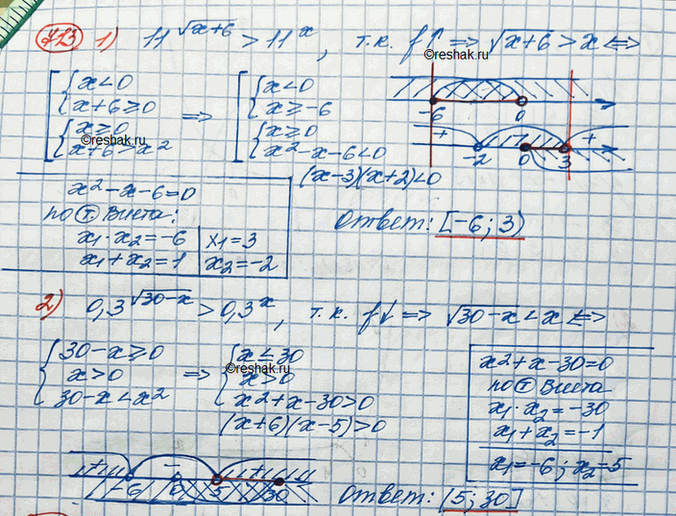 713 1) 11^√x+6 > 11^x, т.к. f↑ ⇒ √x+6 > x ⇔
©reshak.ru
[ { x<0 ⇒ [ { x<0
{ x+6≥0 { x≥-6
{ x≥0 { x≥0
{ x+6>x² { x²-x-6<0
(x-3)(x+2)<0
©reshak.ru
-6 0
+ - +
-2 0 3
x²-x-6=0
по т Виета:
x₁·x₂=-6 | x₁=3
x₁+x₂=1 | x₂=-2
Ответ: [-6; 3)
2) 0,3^√30-x > 0,3^x, т.к. f↓ ⇒ √30-x < x ⇔
{ 30-x≥0 ⇒ { x≤30
{ x>0 { x>0
{ 30-x<x² { x²+x-30>0
(x+6)(x-5)>0
©reshak.ru
x²+x-30=0
по т Виета
x₁·x₂=-30
x₁+x₂=-1
x₁=-6; x₂=5
+ - +
-6 0 5 30
Ответ: (5; 30]